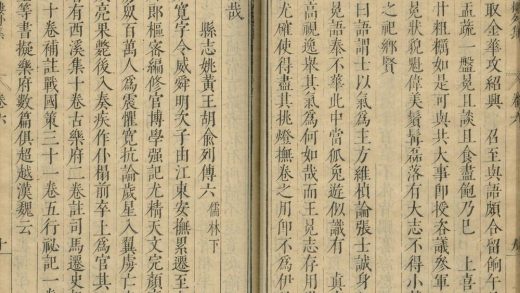 取金華攻紹興　召至與語頗令留餉午
盂疏一盤冕且談且食盡飽乃巳　上喜
廿粗糲如是可與共大事卽授咨議參軍
冕狀貌魁偉美鬚髯磊落有大志不得小
之祀鄉賢
曰語謂士以氣爲主方維楨論張士誠身
冕語泰不華此中當狐兔遊似識有　真
高視逸舉其氣爲何如哉而王冕志存用
尤確使得盡其挑燈撫卷之用卽不爲伊
哉
縣志姚黃王胡俞列傳六　儒林下
寬字令威舜明次子由江東安撫累遷至
郎樞密編修官博學强記尤精天文完顏
眾百萬人爲震懼寬抗論歲星入翼虜亡
亮果斃後入奏疾作仆榻前卒上爲官其
有西溪集十卷古樂府二卷註司馬遷史
十卷補註戰國策三十一卷五行祕記一
等書擬樂府數篇俱超越漢魏云
卷六　十